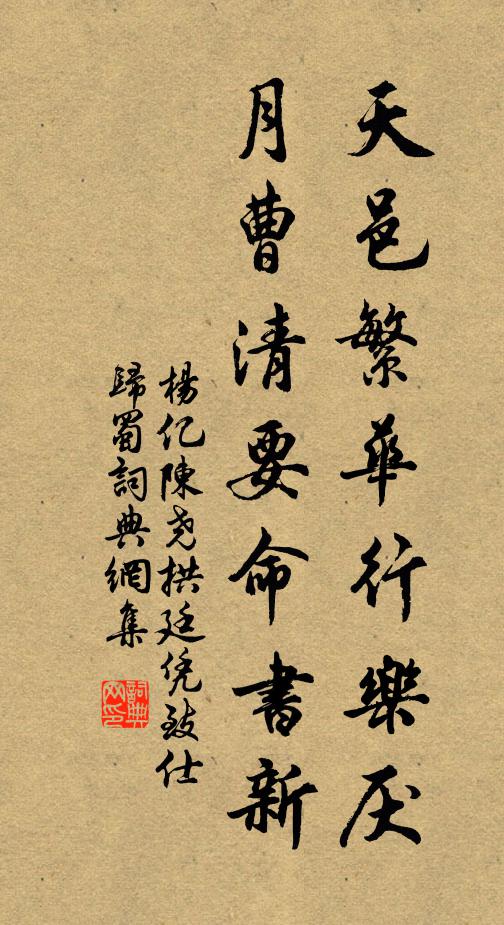 天邑繁華行樂厌
月曹清要命書新
楊亿陳尧拱廷凭致仕
歸蜀詞典網集
詞典
网印